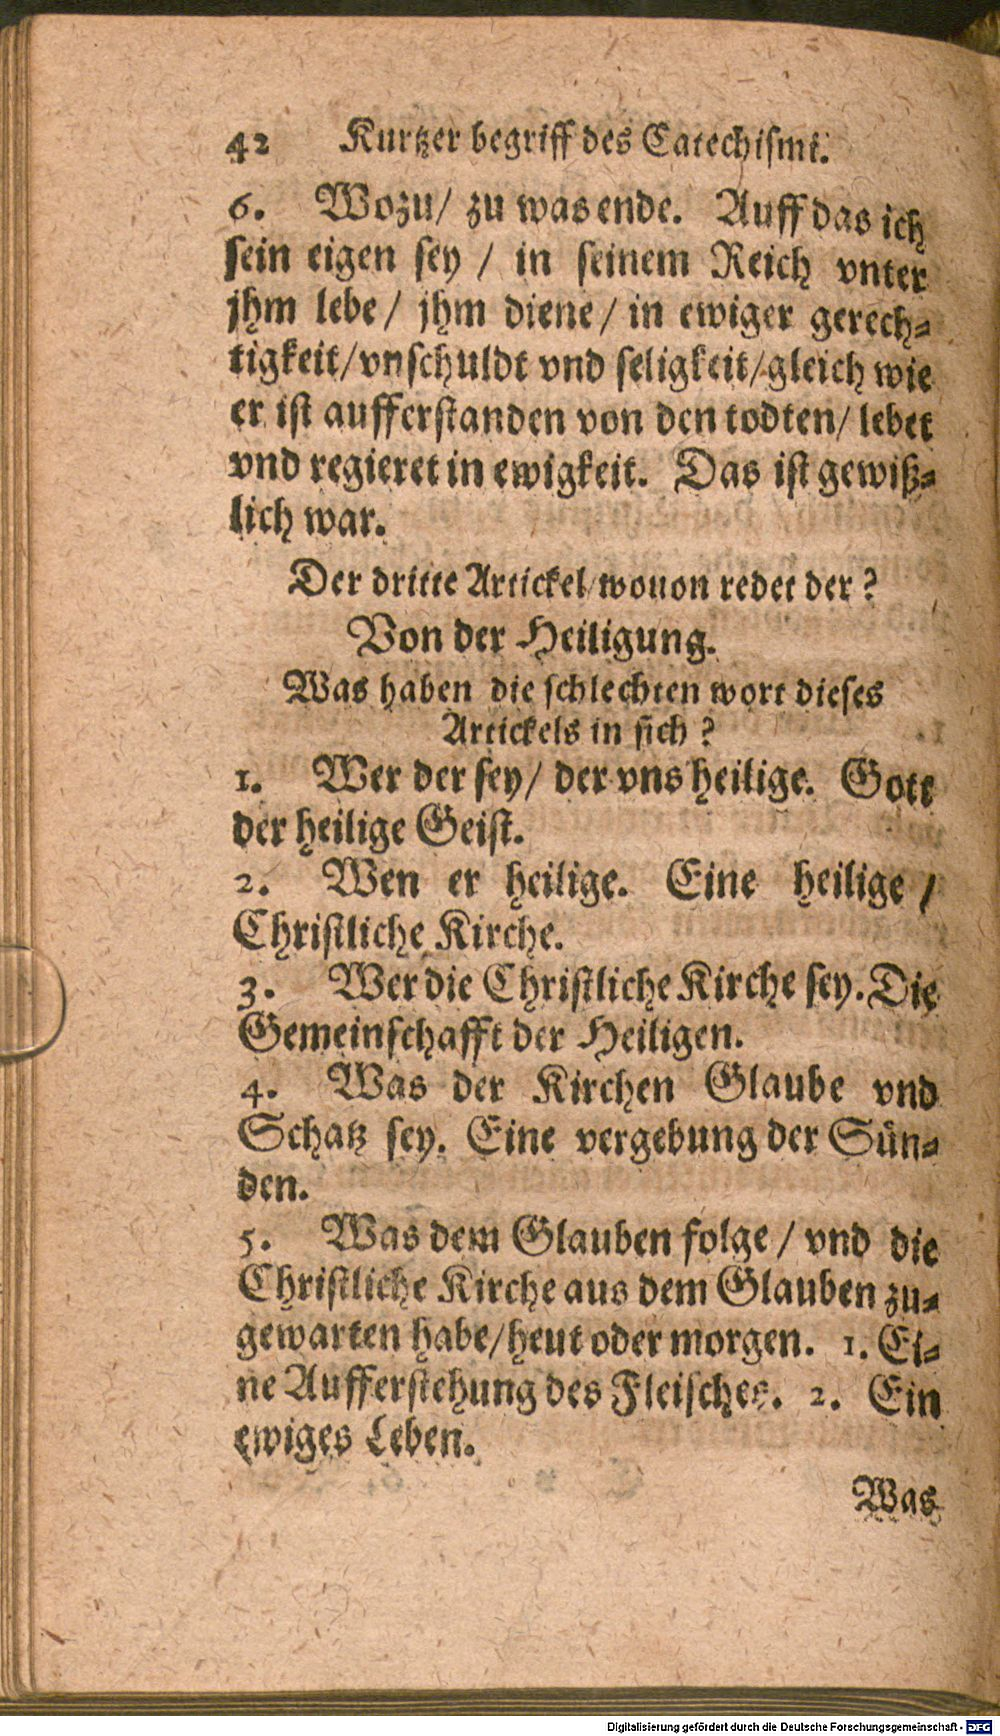 42 Kurtzer begriff des Catechismi.
6. Wozu/ zu was ende. Auff das ich
sein eigen sey / in seinem Reich vnter
jhm lebe/ jhm diene/ in ewiger gerech⸗
tigkeit/vnschuldt vnd seligkeit/gleich wie
er ist aufferstanden von den todten/ lebet
vnd regieret in ewigkeit. Das ist gewiß⸗
lich war.
Der dritte Artickel/wouon redet der?
Von der Heiligung.
Was haben die schlechten wort dieses
Artickels in sich?
1. Wer der sey/ der vns heilige. Gott
der heilige Geist.
2. Wen er heilige. Eine heilige /
Christliche Kirche.
3. Wer die Christliche Kirche sey. Die
Gemeinschafft der Heiligen.
4. Was der Kirchen Glaube vnd
Schatz sey. Eine vergebung der Sün⸗
den.
5. Was dem Glauben folge / vnd die
Christliche Kirche aus dem Glauben zu⸗
gewarten habe/heut oder morgen. 1. Ei⸗
ne Aufferstehung des Fleisches. 2. Ein
ewiges Leben.
Was
Digitalisierung gefördert durch die Deutsche Forschungsgemeinschaft - DFG